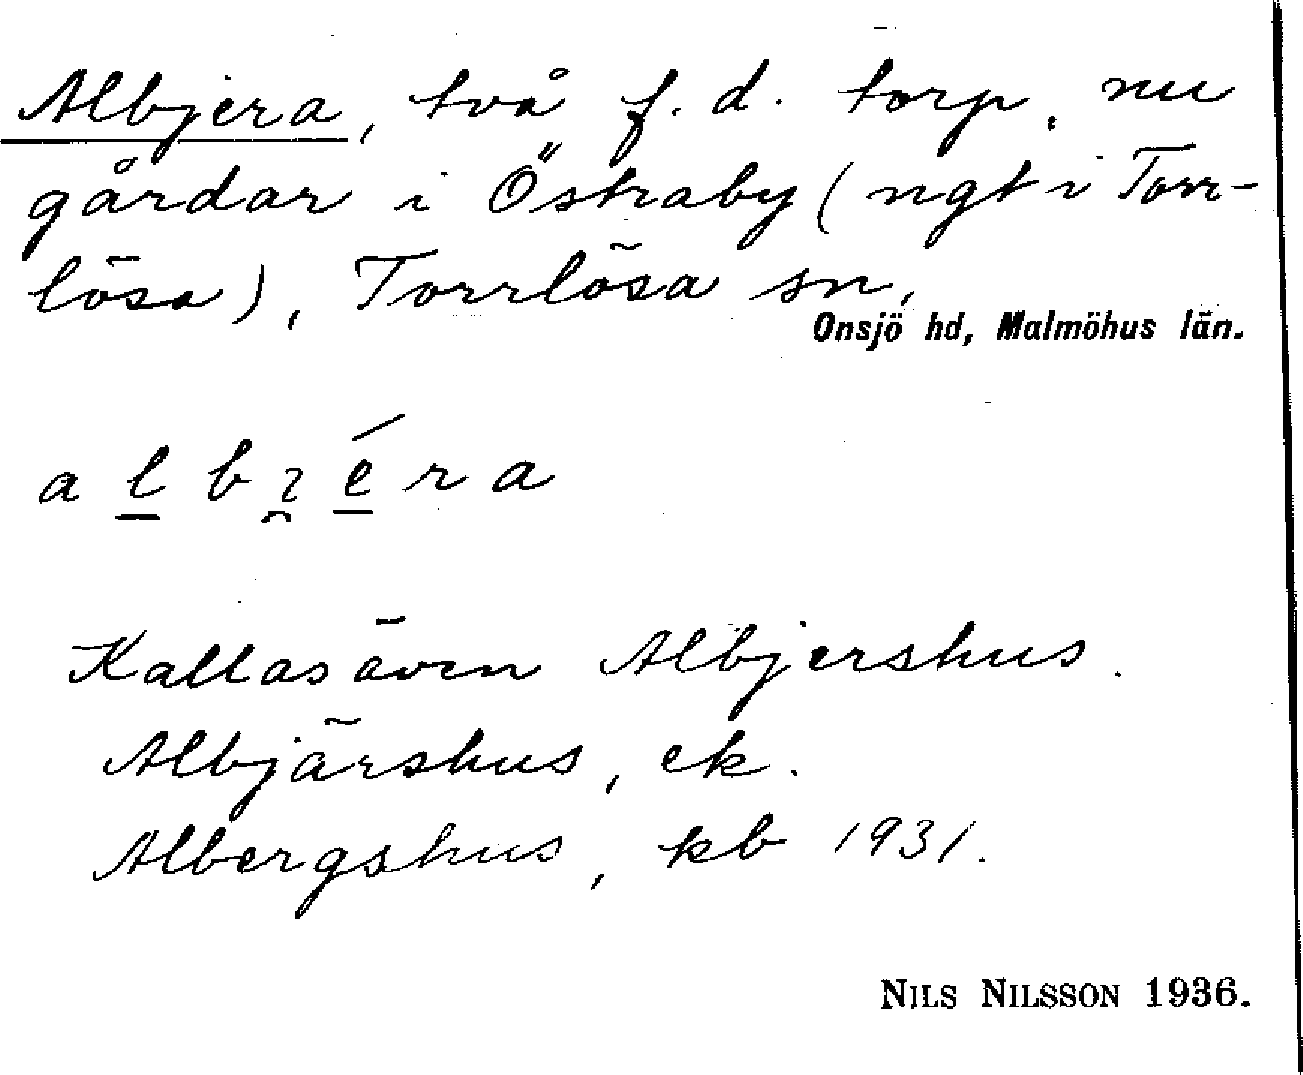 Albjera, två f. d. torp, nu
gårdar i Östraby (ngt i Torr-
lösa), Torrlösa sn,
Onsjö hd, Malmöhus län.
a l b ı é r a
Kallas även Albjershus.
Albjärshus, ek.
Albergshus, kb 1931.
NILS NILSSON 1936.